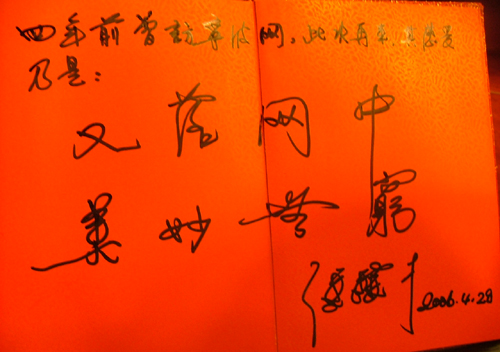 四年前曾访宁波网，此次再来，感受
乃是：
又落网中
美妙无穷
2006.4.28